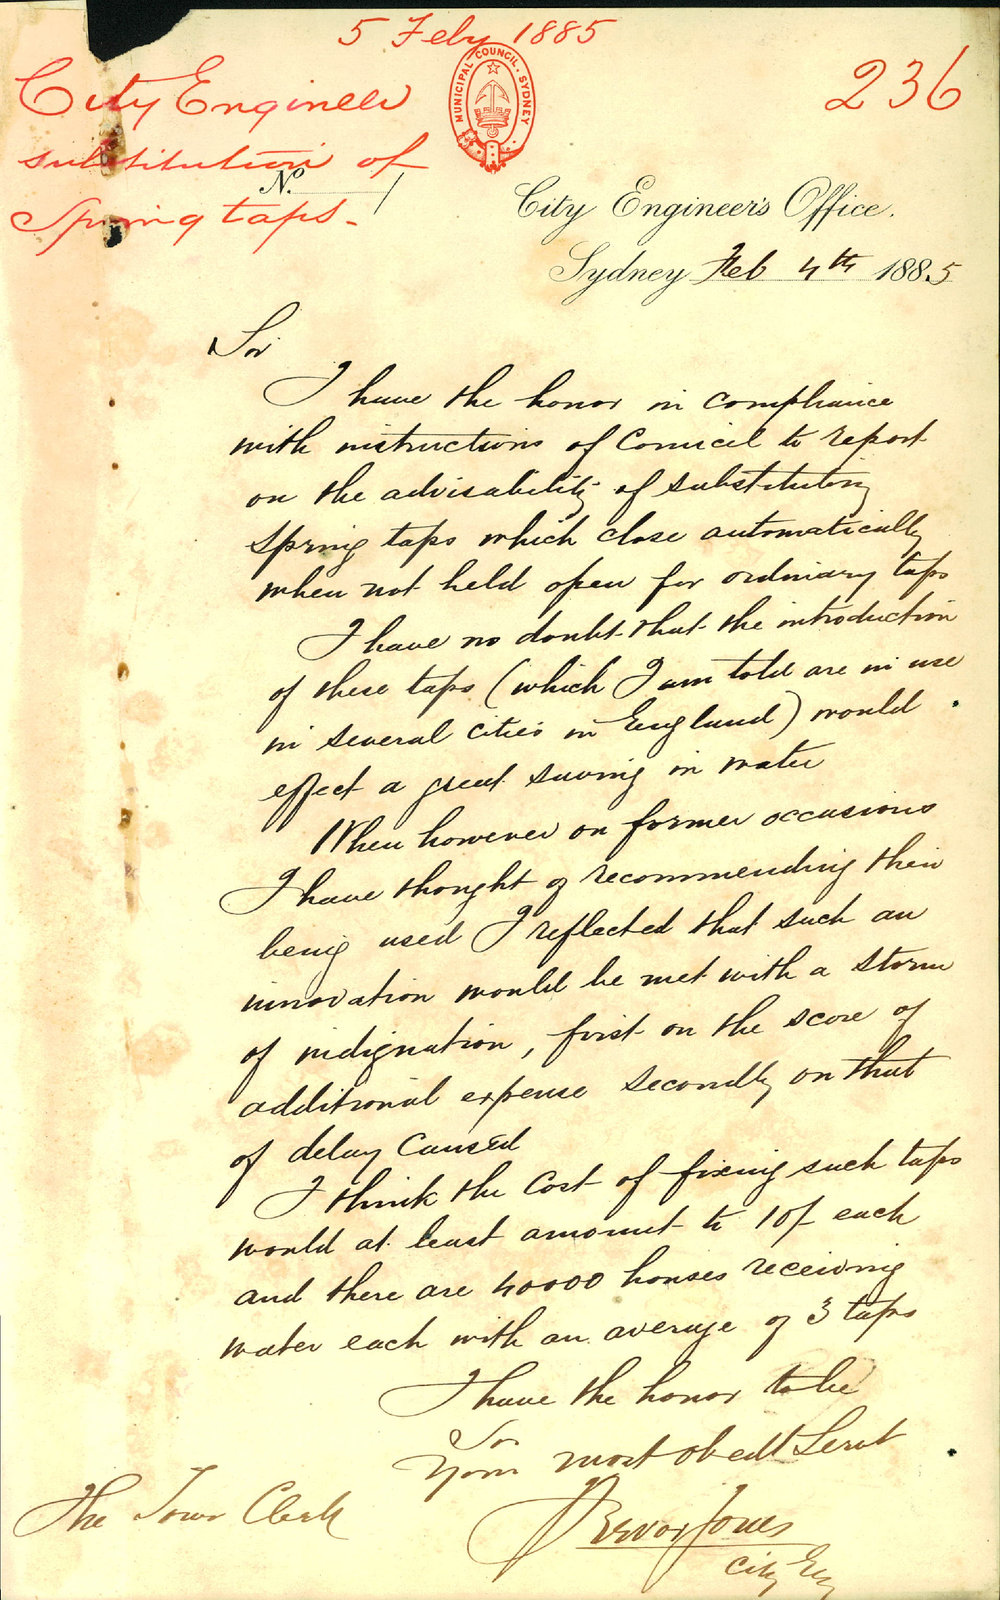 5 Feby 1885
236
City Engineer
substitution of
Spring taps.
MUNICIPAL COUNCIL. SYDNEY
No.
City Engineer's Office.
Sydney Feb 4th 1885
Sir
I have the honor in compliance
with instructions of Council to report
on the advisability of substituting
spring taps which close automatically
when not held open for ordinary taps
I have no doubt that the introduction
of these taps (which I am told are in use
in several cities in England) would
effect a great saving in water
When however on former occasions
I have thought of recommending their
being used I reflected that such an
innovation would be met with a storm
of indignation, first on the score of
additional expense secondly on that
of delay caused
I think the cost of fixing such taps
would at least amount to 10/- each
and there are 40000 houses receiving
water each with an average of 3 taps
I have the honor to be
Sir
Your most obedt Servt
Trevor Jones
City Eng
The Town Clerk